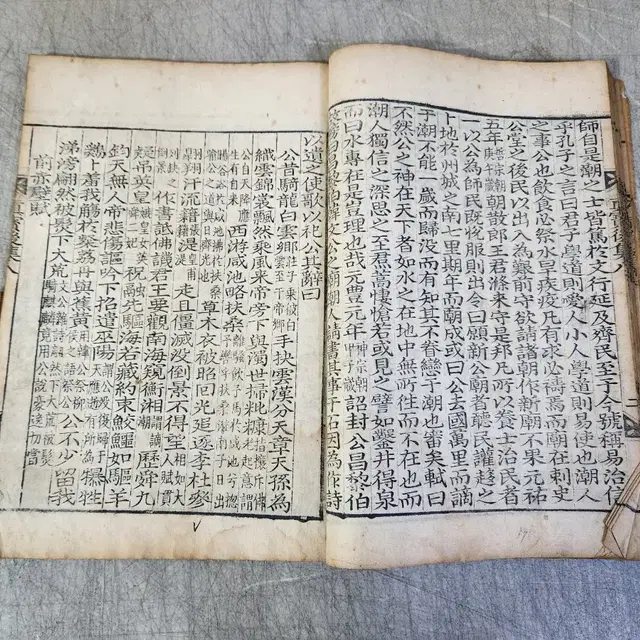 師自是潮之士皆篤於文行延及齊民至于今號稱易治信
乎孔子之言曰君子學道則愛人小人學道則易使也潮人
之事公也飲食必祭水旱疾疫凡有求必禱焉而廟在刺史
公堂之後民以出入為艱前守欲請諸朝作新廟不果元祐
五年朝散郎王君滌來守是邦凡所以養士治民者
一以公為師民既悅服則出令曰願新公廟者聽民讙趨之
卜地於州城之南七里期年而廟成或曰公去國萬里而謫
于潮不能一歲而歸沒而有知其不眷戀于潮也審矣軾曰
不然公之神在天下者如水之在地中無所往而不在也而
潮人獨信之深思之至焄蒿悽愴若或見之譬如鑿井得泉
而曰水專在是豈理也哉元豐元年詔封公昌黎伯
故榜曰昌黎伯韓文公之廟潮人請書其事于石因為作詩
以遺之使歌以祀公其辭曰
公昔騎龍白雲鄉莊子乘彼白雲至于帝鄉手抉雲漢分天章天孫為
織雲錦裳飄然乘風來帝旁下與濁世掃粃糠
公自天降應生有自來西游咸池略扶桑草木衣被昭回光追逐李杜參
翱翔汗流籍湜走且僵滅沒倒景不得望
作書詆佛譏君王要觀南海窺衡湘歷舜九
疑弔英皇祝融先驅海若藏約束鮫鱷如驅羊
鈞天無人帝悲傷謳吟下招遣巫陽犦牲
鷄卜羞我觴於粲荔丹與蕉黃公不少留我
涕滂翩然被髮下大荒
前赤壁賦